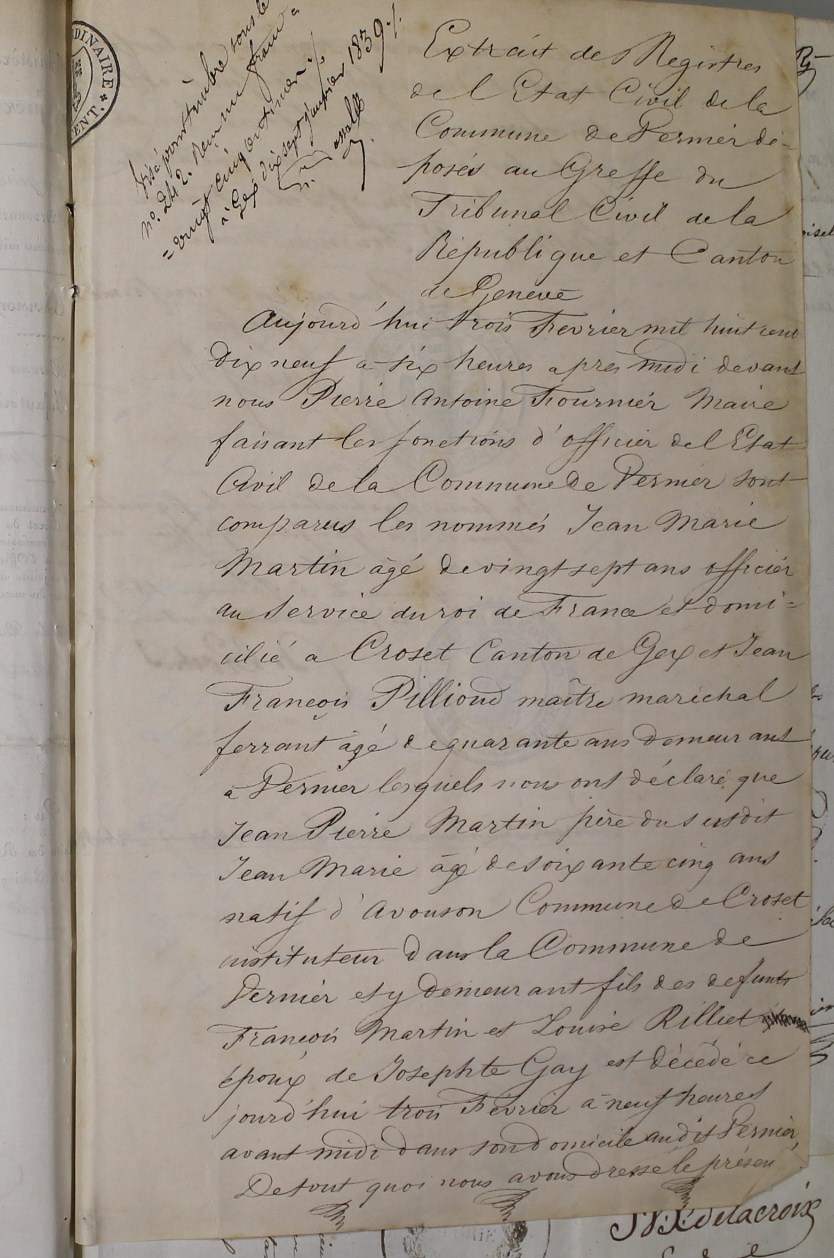 DINAIRE
ENT.
Visé pour timbre sous le
n.º 242. Reçu un franc
vingt cinq centimes
à Gex dix sept janvier 1839
Extrait des Registres
de l Etat Civil de la
Commune de Vernier dé-
posés au Greffe du
Tribunal Civil de la
République et Canton
de Geneve
Aujourd'hui trois Fevrier mil huit cent
dix neuf a six heures apres midi devant
nous Pierre Antoine Fournier Maire
faisant les fonctions d'officier de l Etat
Civil de la Commune de Vernier sont
comparus les nommés Jean Marie
Martin âgé de vingt sept ans officier
au Service du roi de France et domi=
cilié a Croset Canton de Gex et Jean
François Pillioud maître maréchal
ferrant âgé de quarante ans demeurant
a Vernier lesquels nous ont déclaré que
Jean Pierre Martin père du susdit
Jean Marie âgé de soixante cinq ans
natif d'Avouson Commune de Croset
instituteur dans la Commune de
Vernier et y demeurant fils des defunts
François Martin et Louise Rilliet
époux de Josephte Gay est décédé ce
jourd'hui trois Fevrier a neuf heures
avant midi dans son domicile audit Vernier,
De tout quoi nous avons dressé le présent
delacroix